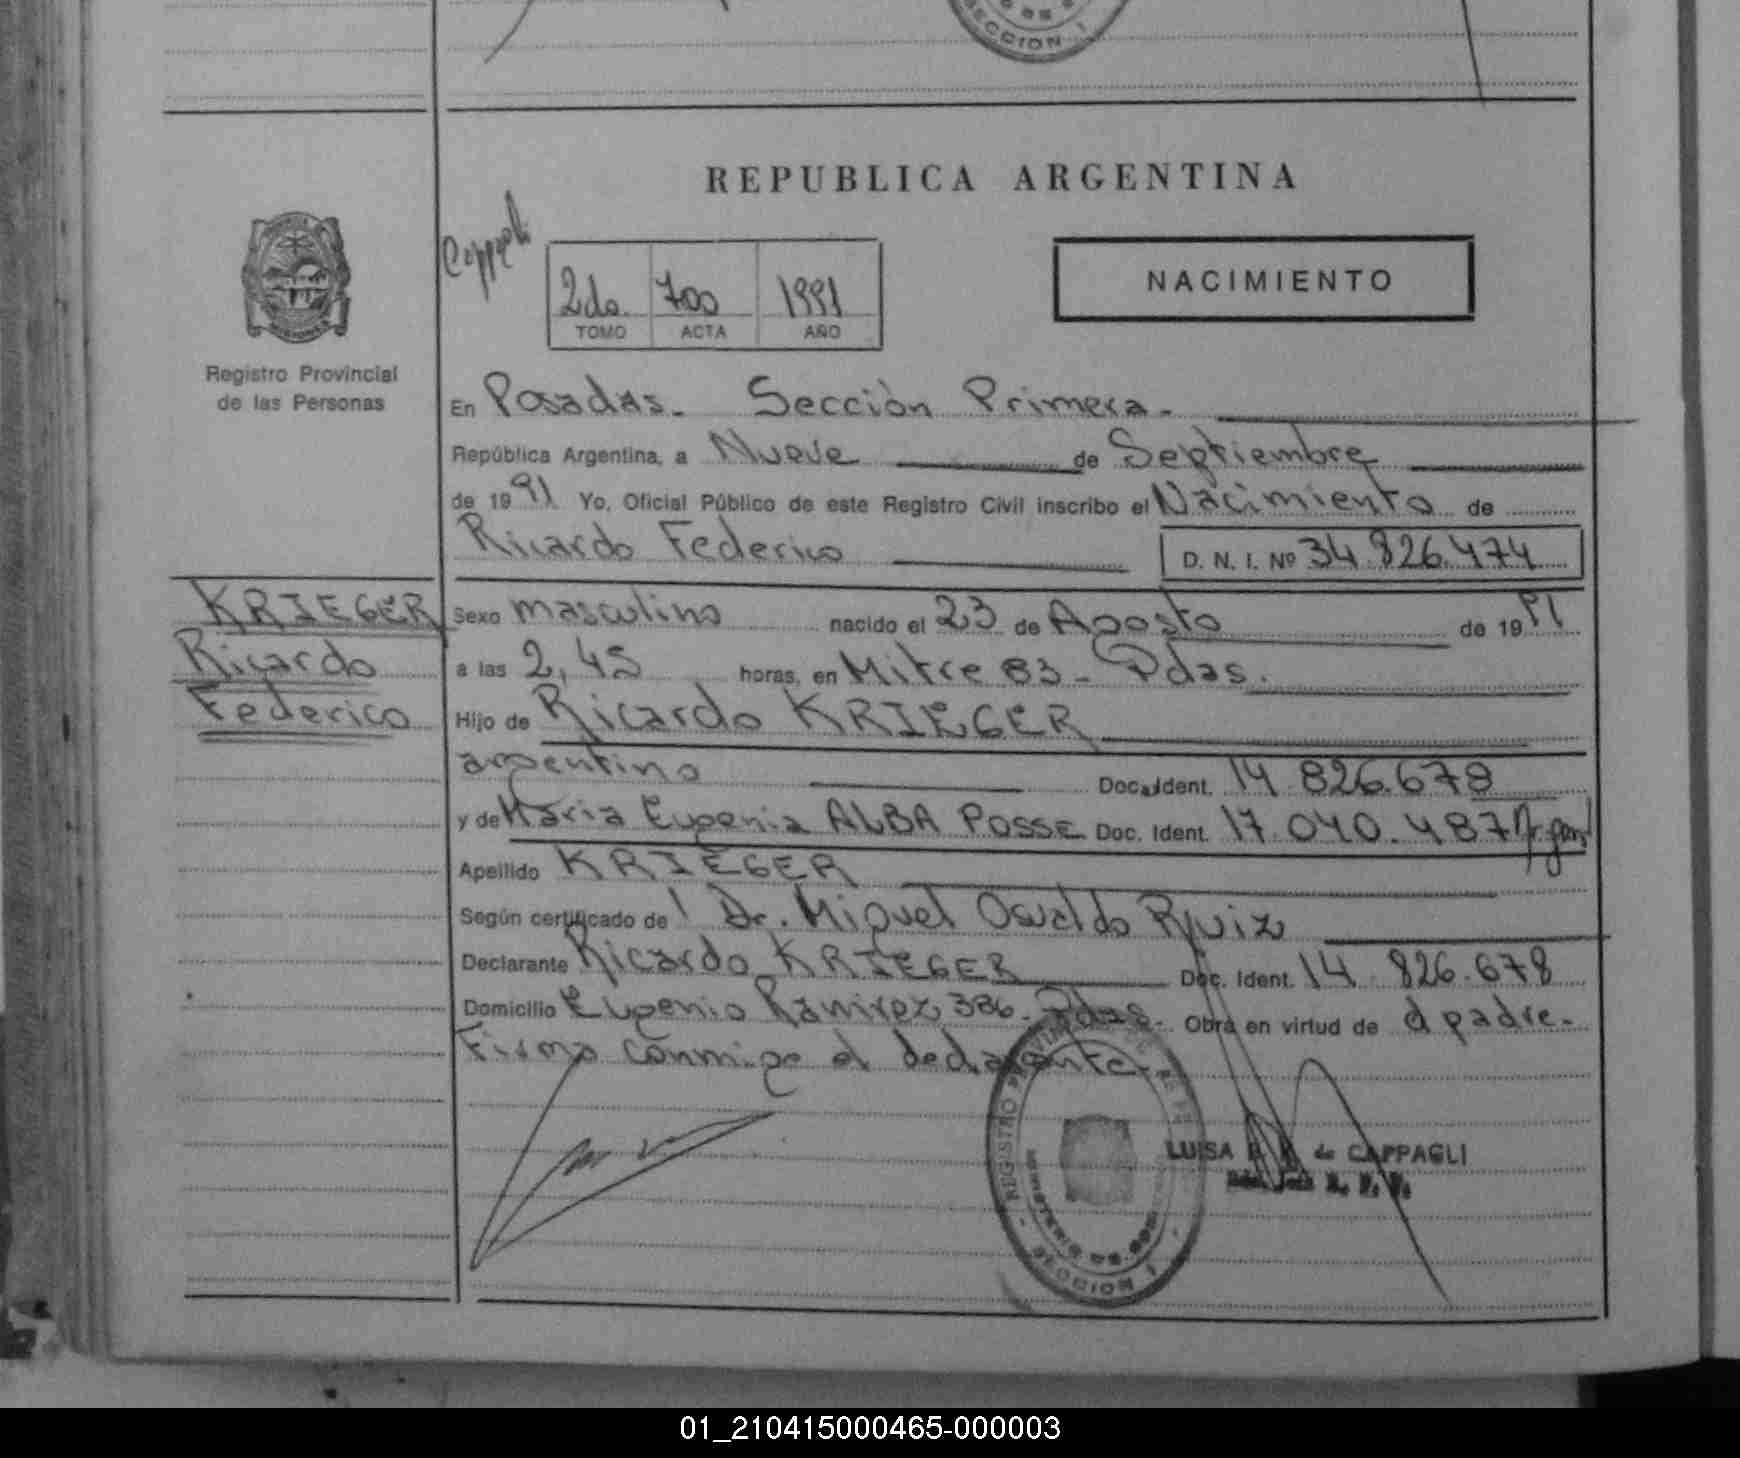 SECCION I
REPUBLICA ARGENTINA
2do. 700 1991
TOMO ACTA AÑO
NACIMIENTO
Registro Provincial
de las Personas
En Posadas. Sección Primera.
República Argentina, a Nueve de Septiembre
de 1991 Yo, Oficial Público de este Registro Civil inscribo el Nacimiento de
Ricardo Federico D. N. I. Nº 34.826.474
KRIEGER
Ricardo
Federico
Sexo masculino nacido el 23 de Agosto de 1991
a las 2,45 horas, en Mitre 83 - Pdas.
Hijo de Ricardo KRIEGER
argentino Doc. Ident. 14.826.678
y de Maria Eugenia ALBA POSSE Doc. Ident. 17.040.487
Apellido KRIEGER
Según certificado de Dr. Miguel Osvaldo Ruiz
Declarante Ricardo KRIEGER Doc. Ident. 14.826.678
Domicilio Eugenio Ramirez 386 - Pdas. Obra en virtud de d padre.
Firma conmigo el declarante.
REGISTRO
SECCION I
LUISA de CAPPAGLI
01_210415000465-000003